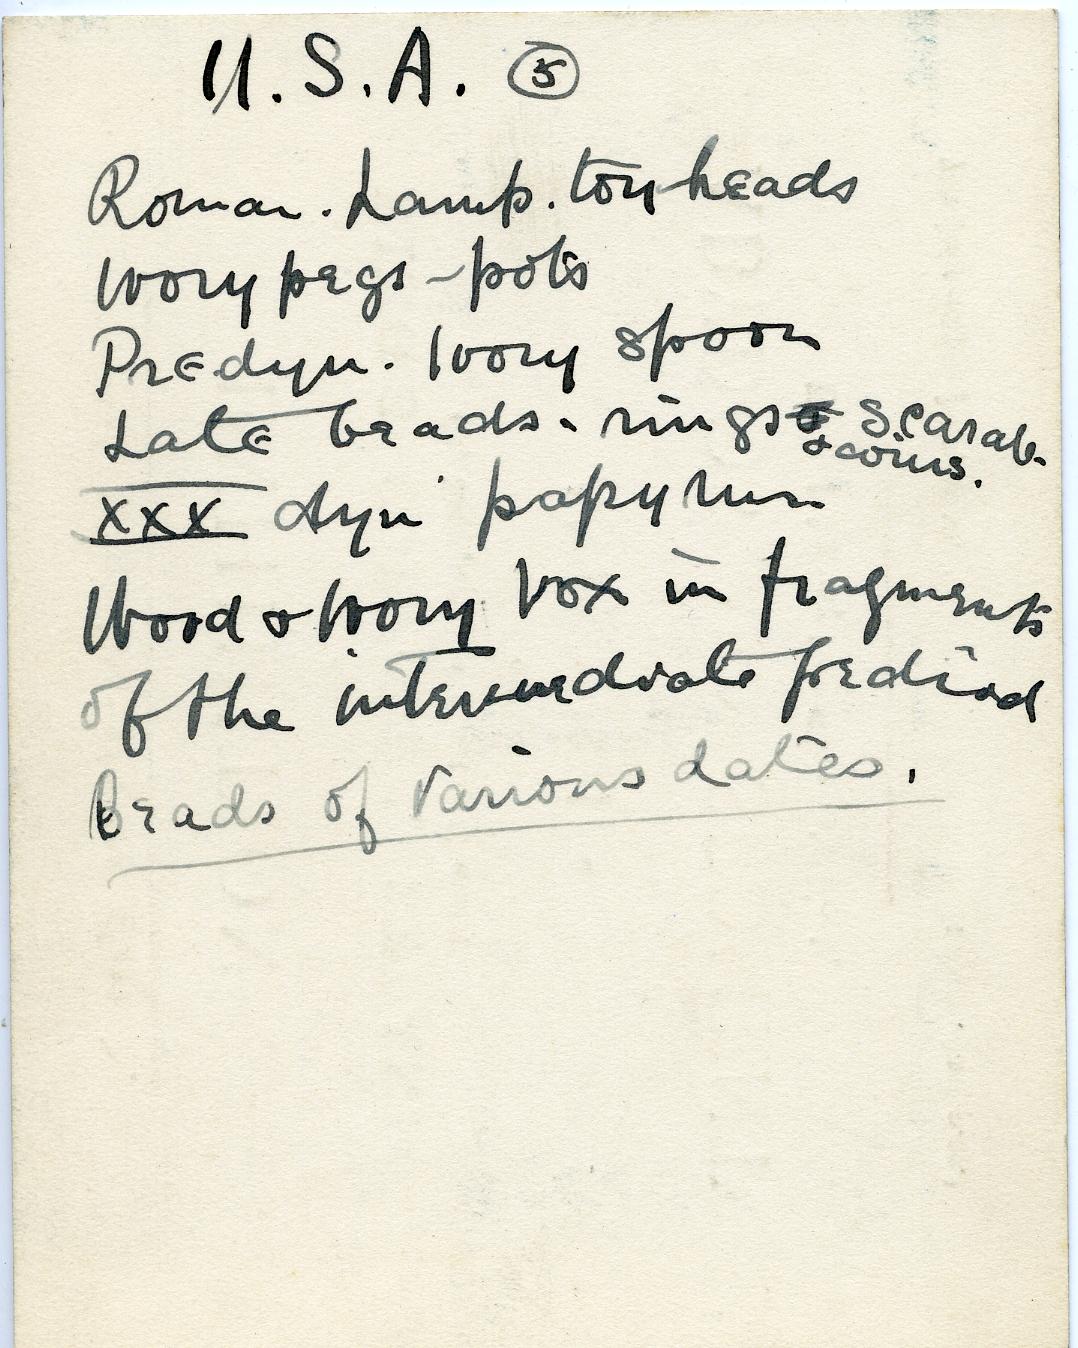 U.S.A. ⑤
Roman. Lamp. toy heads
Ivory pegs - pots
Predyn. Ivory spoon
Late beads. rings Scarab.
& coins.
XXX dyn papyrus
Wood & Ivory box in fragments
of the intermediate period
Beads of various dates.